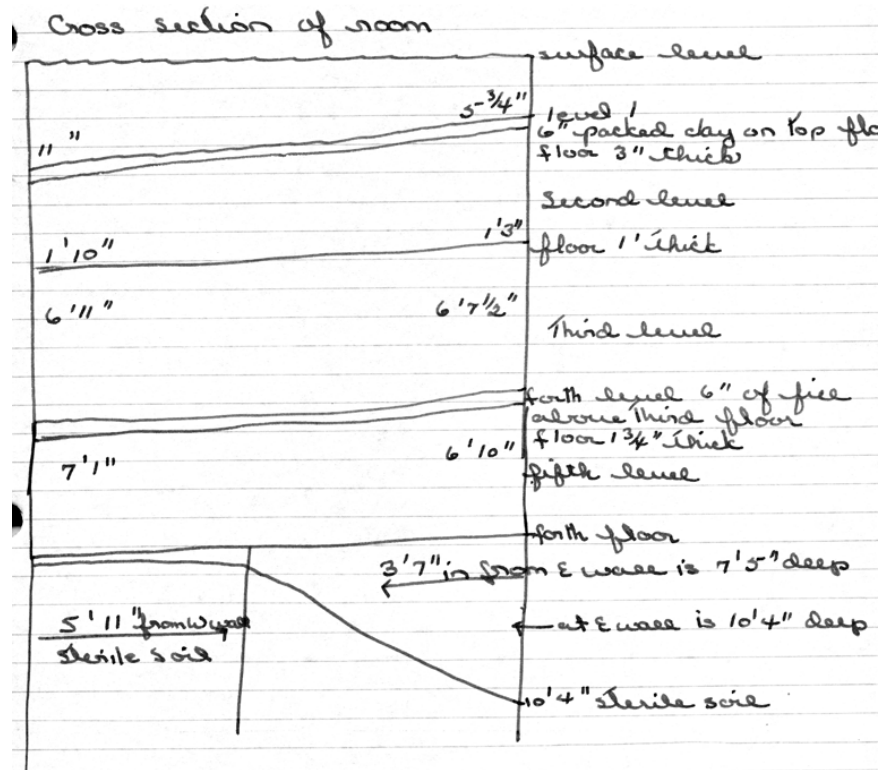 Cross section of room
surface level
5-3/4"
level 1
11"
6" packed clay on top flo
floor 3" thick
Second level
1'3"
1'10"
floor 1' thick
6'11"
6'7 1/2"
Third level
forth level 6" of fill
above Third floor
floor 1 3/4" thick
6'10"
7'1"
fifth level
forth floor
3'7" in from E wall is 7'5" deep
5'11" from W wall
at E wall is 10'4" deep
sterile soil
10'4" sterile soil